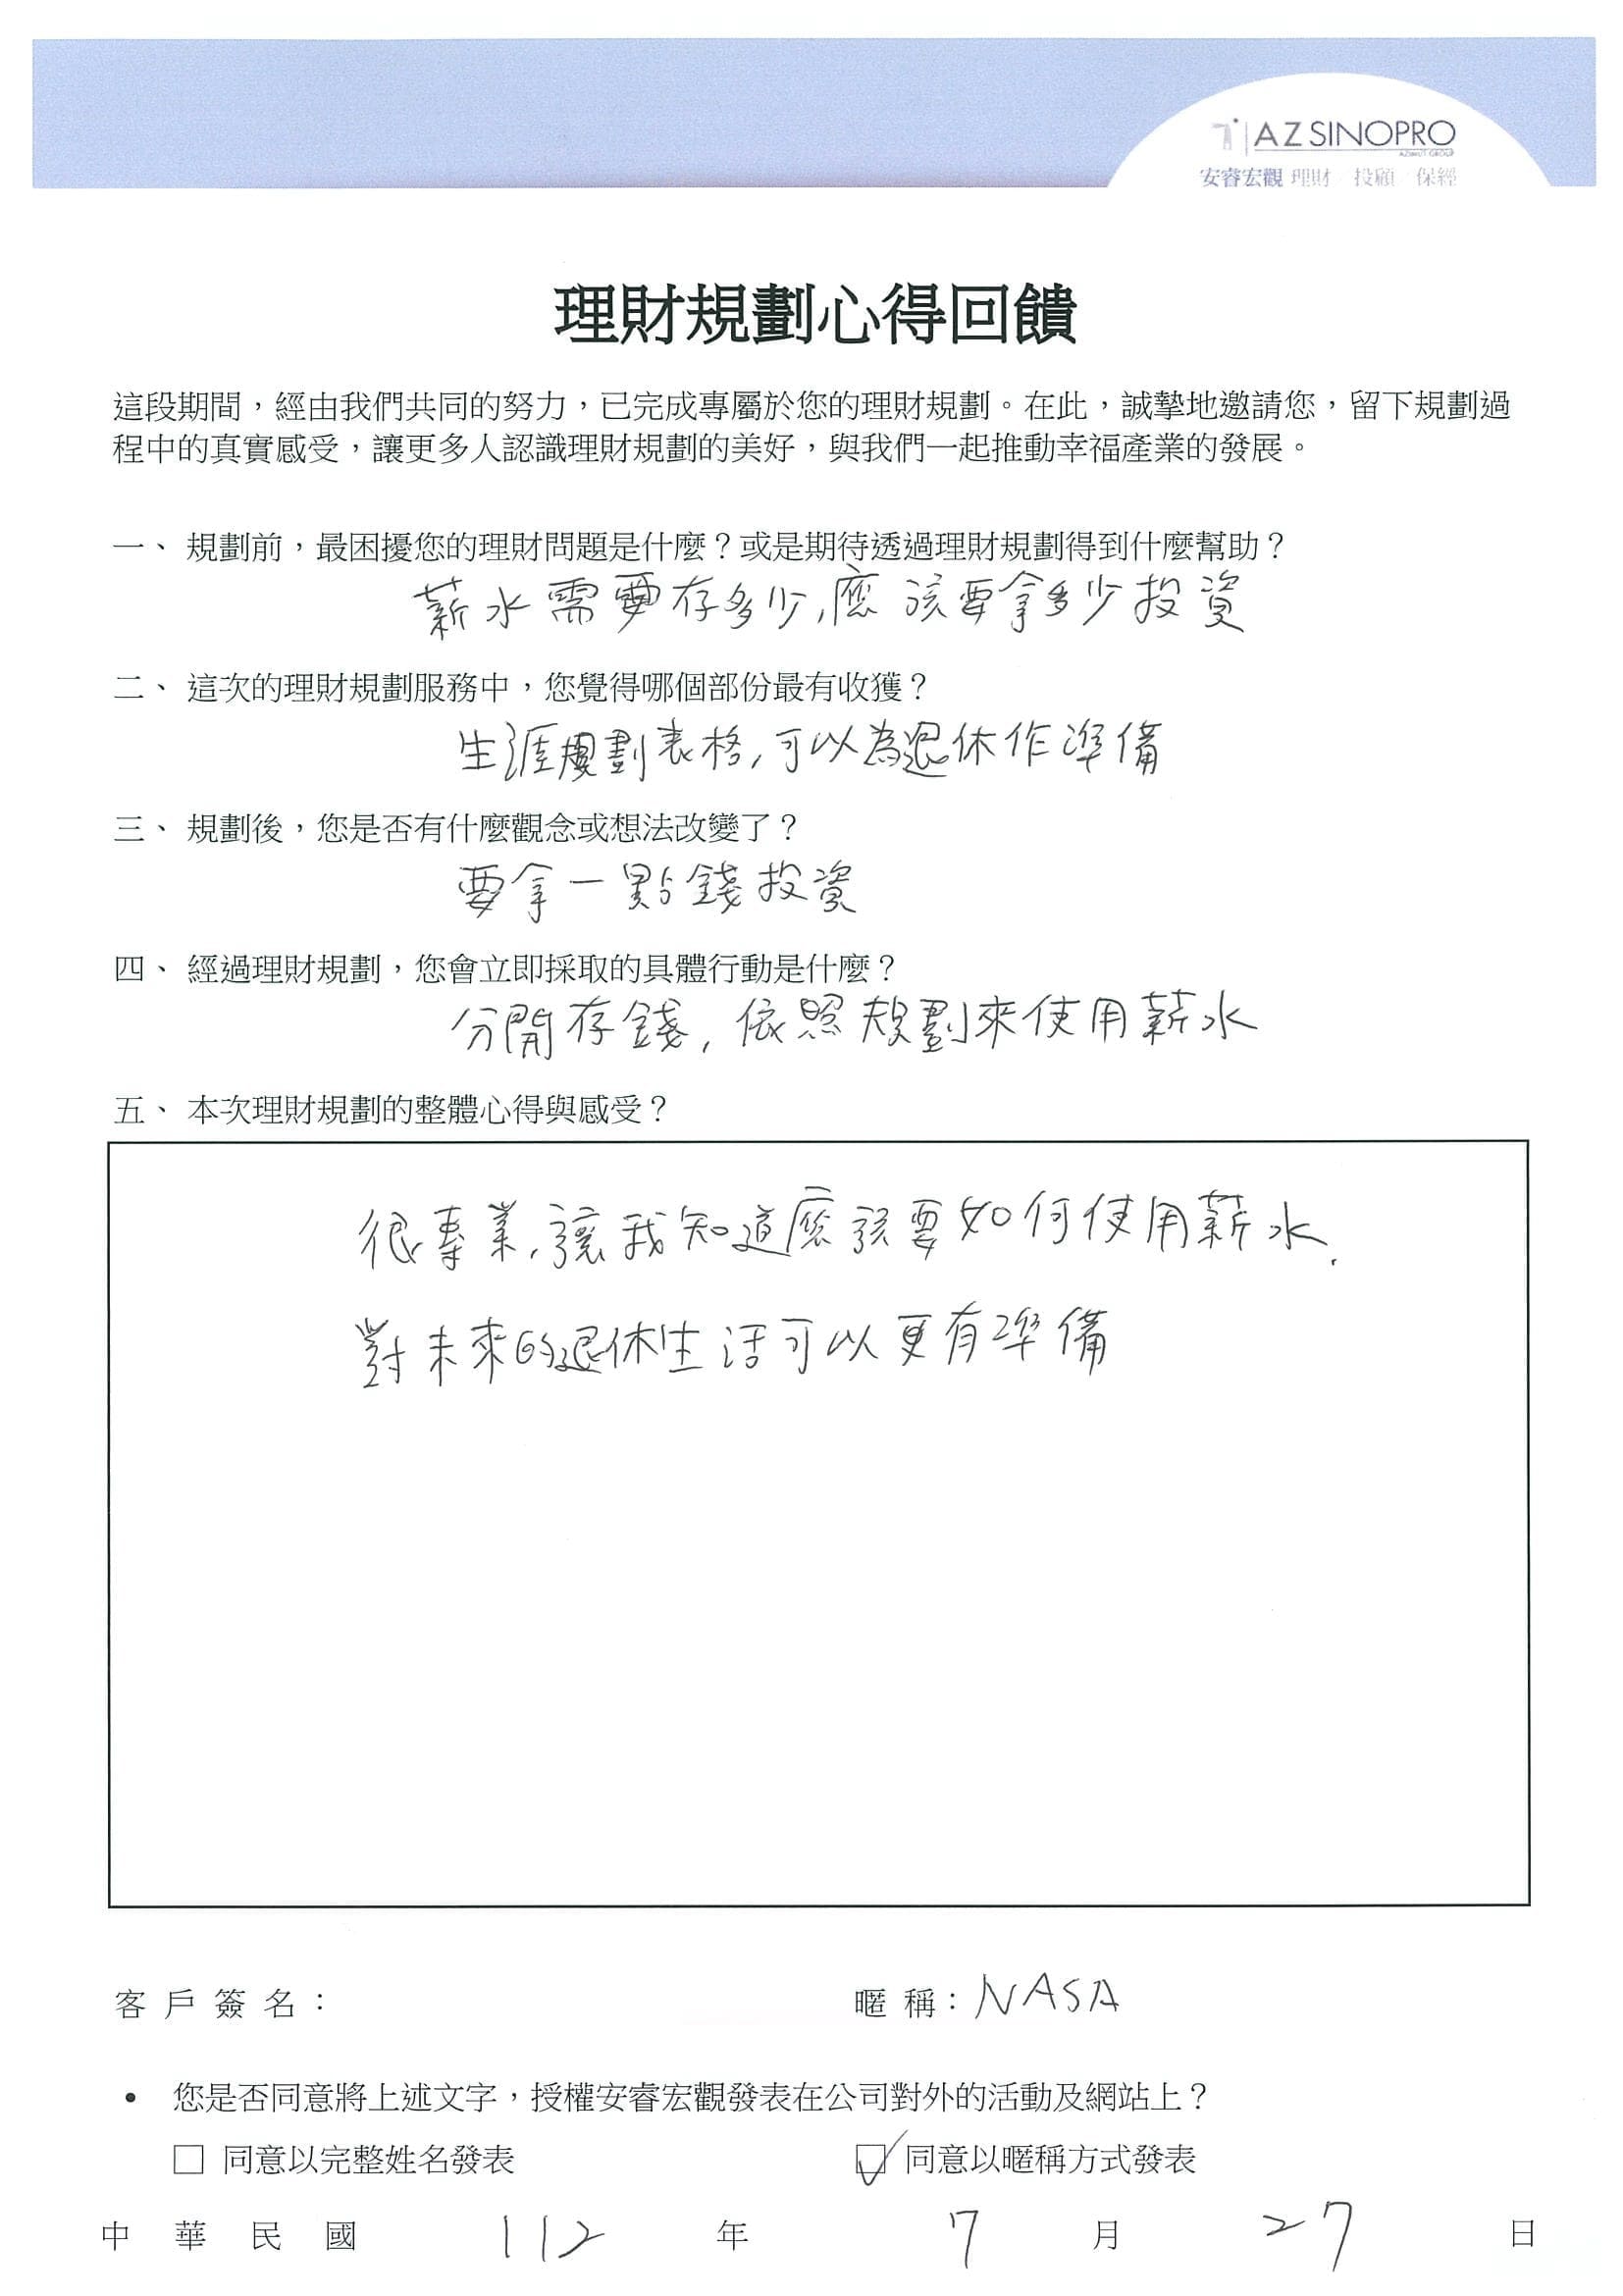 AZ SINOPRO
AZIMUT GROUP
安睿宏觀 理財 / 投顧 / 保經
理財規劃心得回饋
這段期間，經由我們共同的努力，已完成專屬於您的理財規劃。在此，誠摯地邀請您，留下規劃過
程中的真實感受，讓更多人認識理財規劃的美好，與我們一起推動幸福產業的發展。
一、 規劃前，最困擾您的理財問題是什麼？或是期待透過理財規劃得到什麼幫助？
薪水需要存多少,應該要拿多少投資
二、 這次的理財規劃服務中，您覺得哪個部份最有收獲？
生涯規劃表格,可以為退休作準備
三、 規劃後，您是否有什麼觀念或想法改變了？
要拿一點錢投資
四、 經過理財規劃，您會立即採取的具體行動是什麼？
分開存錢,依照規劃來使用薪水
五、 本次理財規劃的整體心得與感受？
很專業,讓我知道應該要如何使用薪水.
對未來的退休生活可以更有準備
客戶簽名：
暱稱：NASA
• 您是否同意將上述文字，授權安睿宏觀發表在公司對外的活動及網站上？
□ 同意以完整姓名發表 ☑ 同意以暱稱方式發表
中華民國 112 年 7 月 27 日